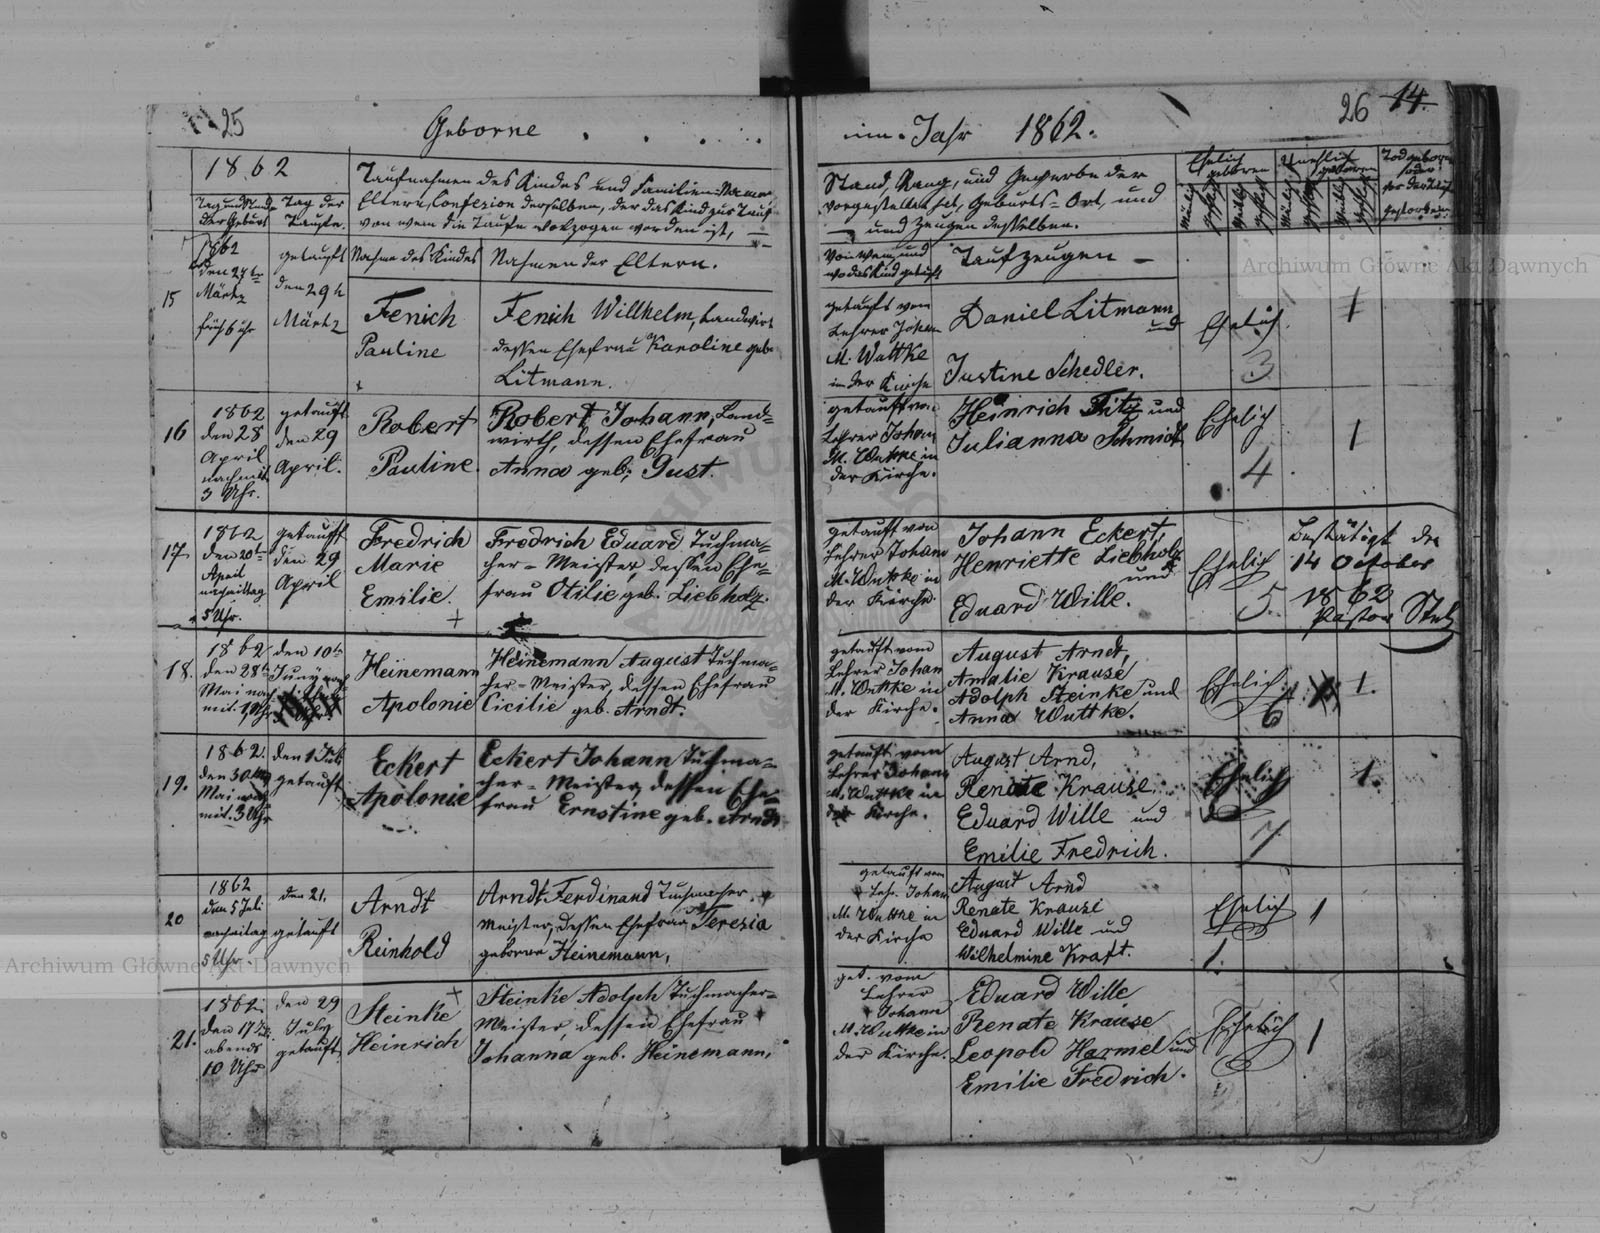 25
Geborne
1862
Taufnahmen des Kindes und Familien-Name
Eltern, Confesion derselben, der das Kind zur Taufe
von wem die Taufe volzogen worden ist,
Tag und Stunde
der Geburt
Tag der
Taufe.
Nahme des Kindes
Nahmen der Eltern.
15
1862
den 27ten
Märtz
früh 6 Uhr
getauft
den 29ten
Märtz
Fenich
Pauline
Fenich Willhelm, Landwirt
dessen Ehefrau Karoline geb.
Litmann.
16
1862
den 28
April
nachmit.
3 Uhr.
getauft
den 29
April.
Robert
Pauline
Robert Johann, Land=
wirth, dessen Ehefrau
Anna geb. Gust.
17
1862
den 20ten
April
nachmittag
5 Uhr.
getauft
den 29
April
Fredrich
Marie
Emilie.
Fredrich Eduard Tuchma=
cher=Meister, dessen Ehe=
frau Otilie geb. Liebholz.
18.
1862
den 28t.
Mai nach
mit.
den 10te
Juny
Heinemann
Apolonie
Heinemann August Tuchma=
cher=Meister, dessen Ehefrau
Cicilie geb. Arndt.
19.
1862.
den 30
Mai nach
mit. 3 Uhr
den 1 Juli
getauft
Eckert
Apolonie
Eckert Johann Tuchma=
cher=Meister, dessen Ehe=
frau Ernstine geb. Arndt
20
1862
den 5 Juli
nachmitag
5 Uhr
den 21.
getauft
Arndt
Reinhold
Arndt Ferdinand Tuchmacher
Meister, dessen Ehefrau Teresia
geborne Heinemann,
21.
1862.
den 17
abends
10 Uhr
den 29
July
getauft
Steinke
Heinrich
Steinke Adolph Tuchmacher=
Meister, dessen Ehefrau
Johanna geb. Heinemann,
im Jahr 1862.
26 14.
Stand, Rang, und Gewerbe der
vorgestellet hat, Geburts=Ort, und
und Zeugen desselben.
Ehelich
geboren
Unehlich
geboren
Todgeboren
oder
vor der Taufe
gestorben
Von wem und
wo das Kind getauft
Taufzeugen
getauft von
Lehrer Johan
M. Wuttke
in der Kirche
Daniel Litmann
und
Justine Schedler.
Ehelich
3
1
getauft von
Lehrer Johan
M. Wuttke in
der Kirche.
Heinrich Fitz und
Julianna Schmidt
Ehelich
4
1
getauft von
Lehrer Johan
M. Wuttke in
der Kirche.
Johann Eckert,
Henriette Liebholz
und
Eduard Wille.
Ehelich
5.
Bestätigt den
14 October
1862
Pastor
getauft vom
Lehrer Johan
M. Wuttke in
der Kirche.
August Arndt,
Amalie Krause
Adolph Steinke und
Anna Wuttke.
Ehelich
6
1.
getauft vom
Lehrer Johann
M. Wuttke in
der Kirche.
August Arnd,
Renate Krause,
Eduard Wille und
Emilie Fredrich.
Ehelich
7
1.
getauft vom
Lehr. Johan
M. Wuttke in
der Kirche
August Arnd
Renate Krause
Eduard Wille und
Wilhelmine Kraft.
Ehelich
1.
1
get. vom
Lehrer
Johann
M. Wuttke in
der Kirche.
Eduard Wille
Renate Krause
Leopold Harmel und
Emilie Fredrich.
Ehelich
1
Archiwum Główne Akt Dawnych
Archiwum Główne Akt Dawnych